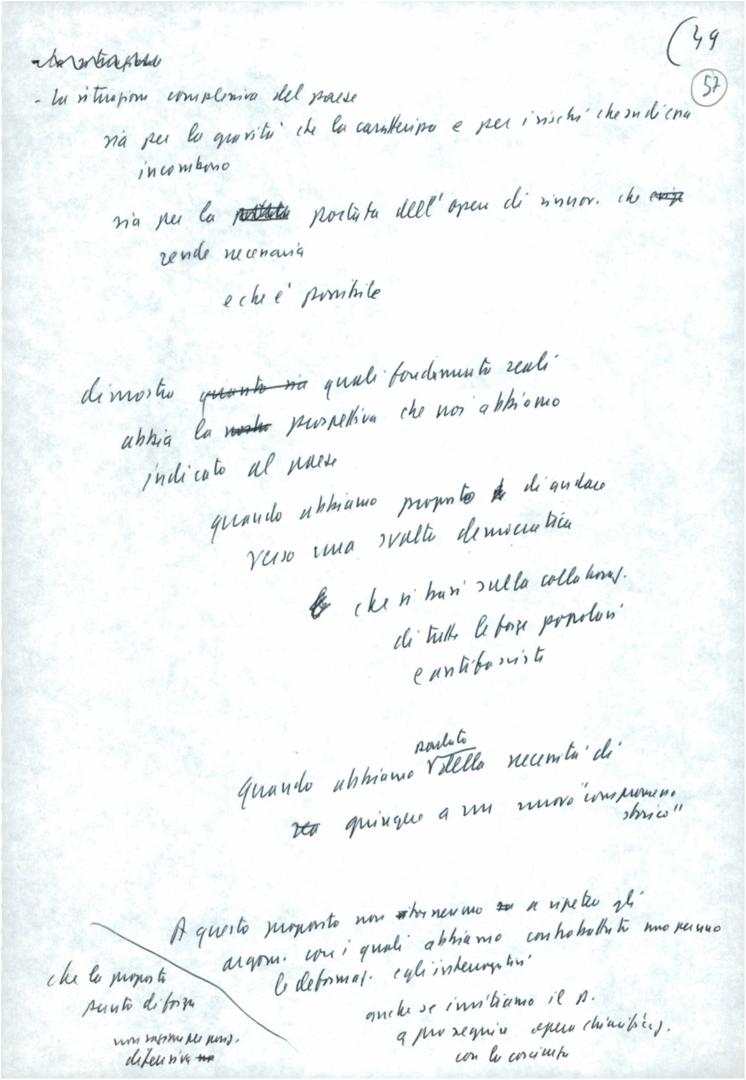 (49
57
- la situazione complessiva del paese
sia per la gravità che la caratterizza e per i rischi che su di essa
incombono
sia per la portata dell'opera di rinnov. che
rende necessaria
e che è possibile
dimostra quanto sia quali fondamenta reali
abbia la nostra prospettiva che noi abbiamo
indicato al paese
quando abbiamo proposto di andare
verso una svolta democratica
che si basi sulla collaboraz.
di tutte le forze popolari
e antifasciste
parlato
quando abbiamo della necessità di
giungere a un nuovo "compromesso
storico"
A questo proposito non torneremo a ripetere gli
argom. con i quali abbiamo controbattuto uno per uno
le deformaz. e gli interrogativi
che la proposta
punto di forza
non
difensiva
anche se invitiamo il P.
a proseguire opera chiarificaz.
con la